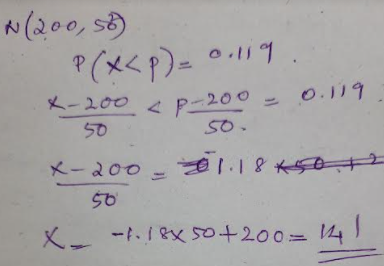 N(200, 50)
P(X<P) = 0.119.
X-200/50 < P-200/50. = 0.119.
X-200/50 = -1.18
X = -1.18×50+200 = 141